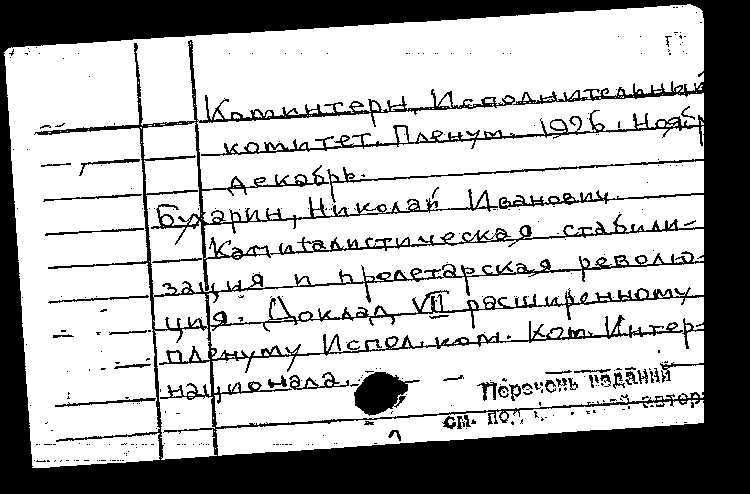 Коминтерн. Исполнительный
комитет. Пленум. 1926. Ноябр
декабрь.
Бухарин, Николай Иванович.
Капиталистическая стабили-
зация и пролетарская револю-
ция. Доклад VII расширенному
пленуму Испол. ком. Ком. Интер-
национала. –
Перечень изданий
см. под